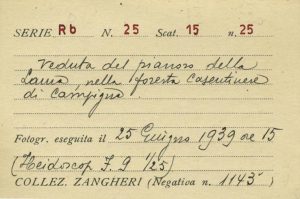 SERIE Rb N. 25 Scat. 15 n. 25
Veduta del pianoro della
Lama, nella foresta Casentinese
di Campigna
Fotogr. eseguita il 25 Giugno 1939 ore 15
(Heidoscop F. 9 1/25)
COLLEZ. ZANGHERI (Negativa n. 1143)